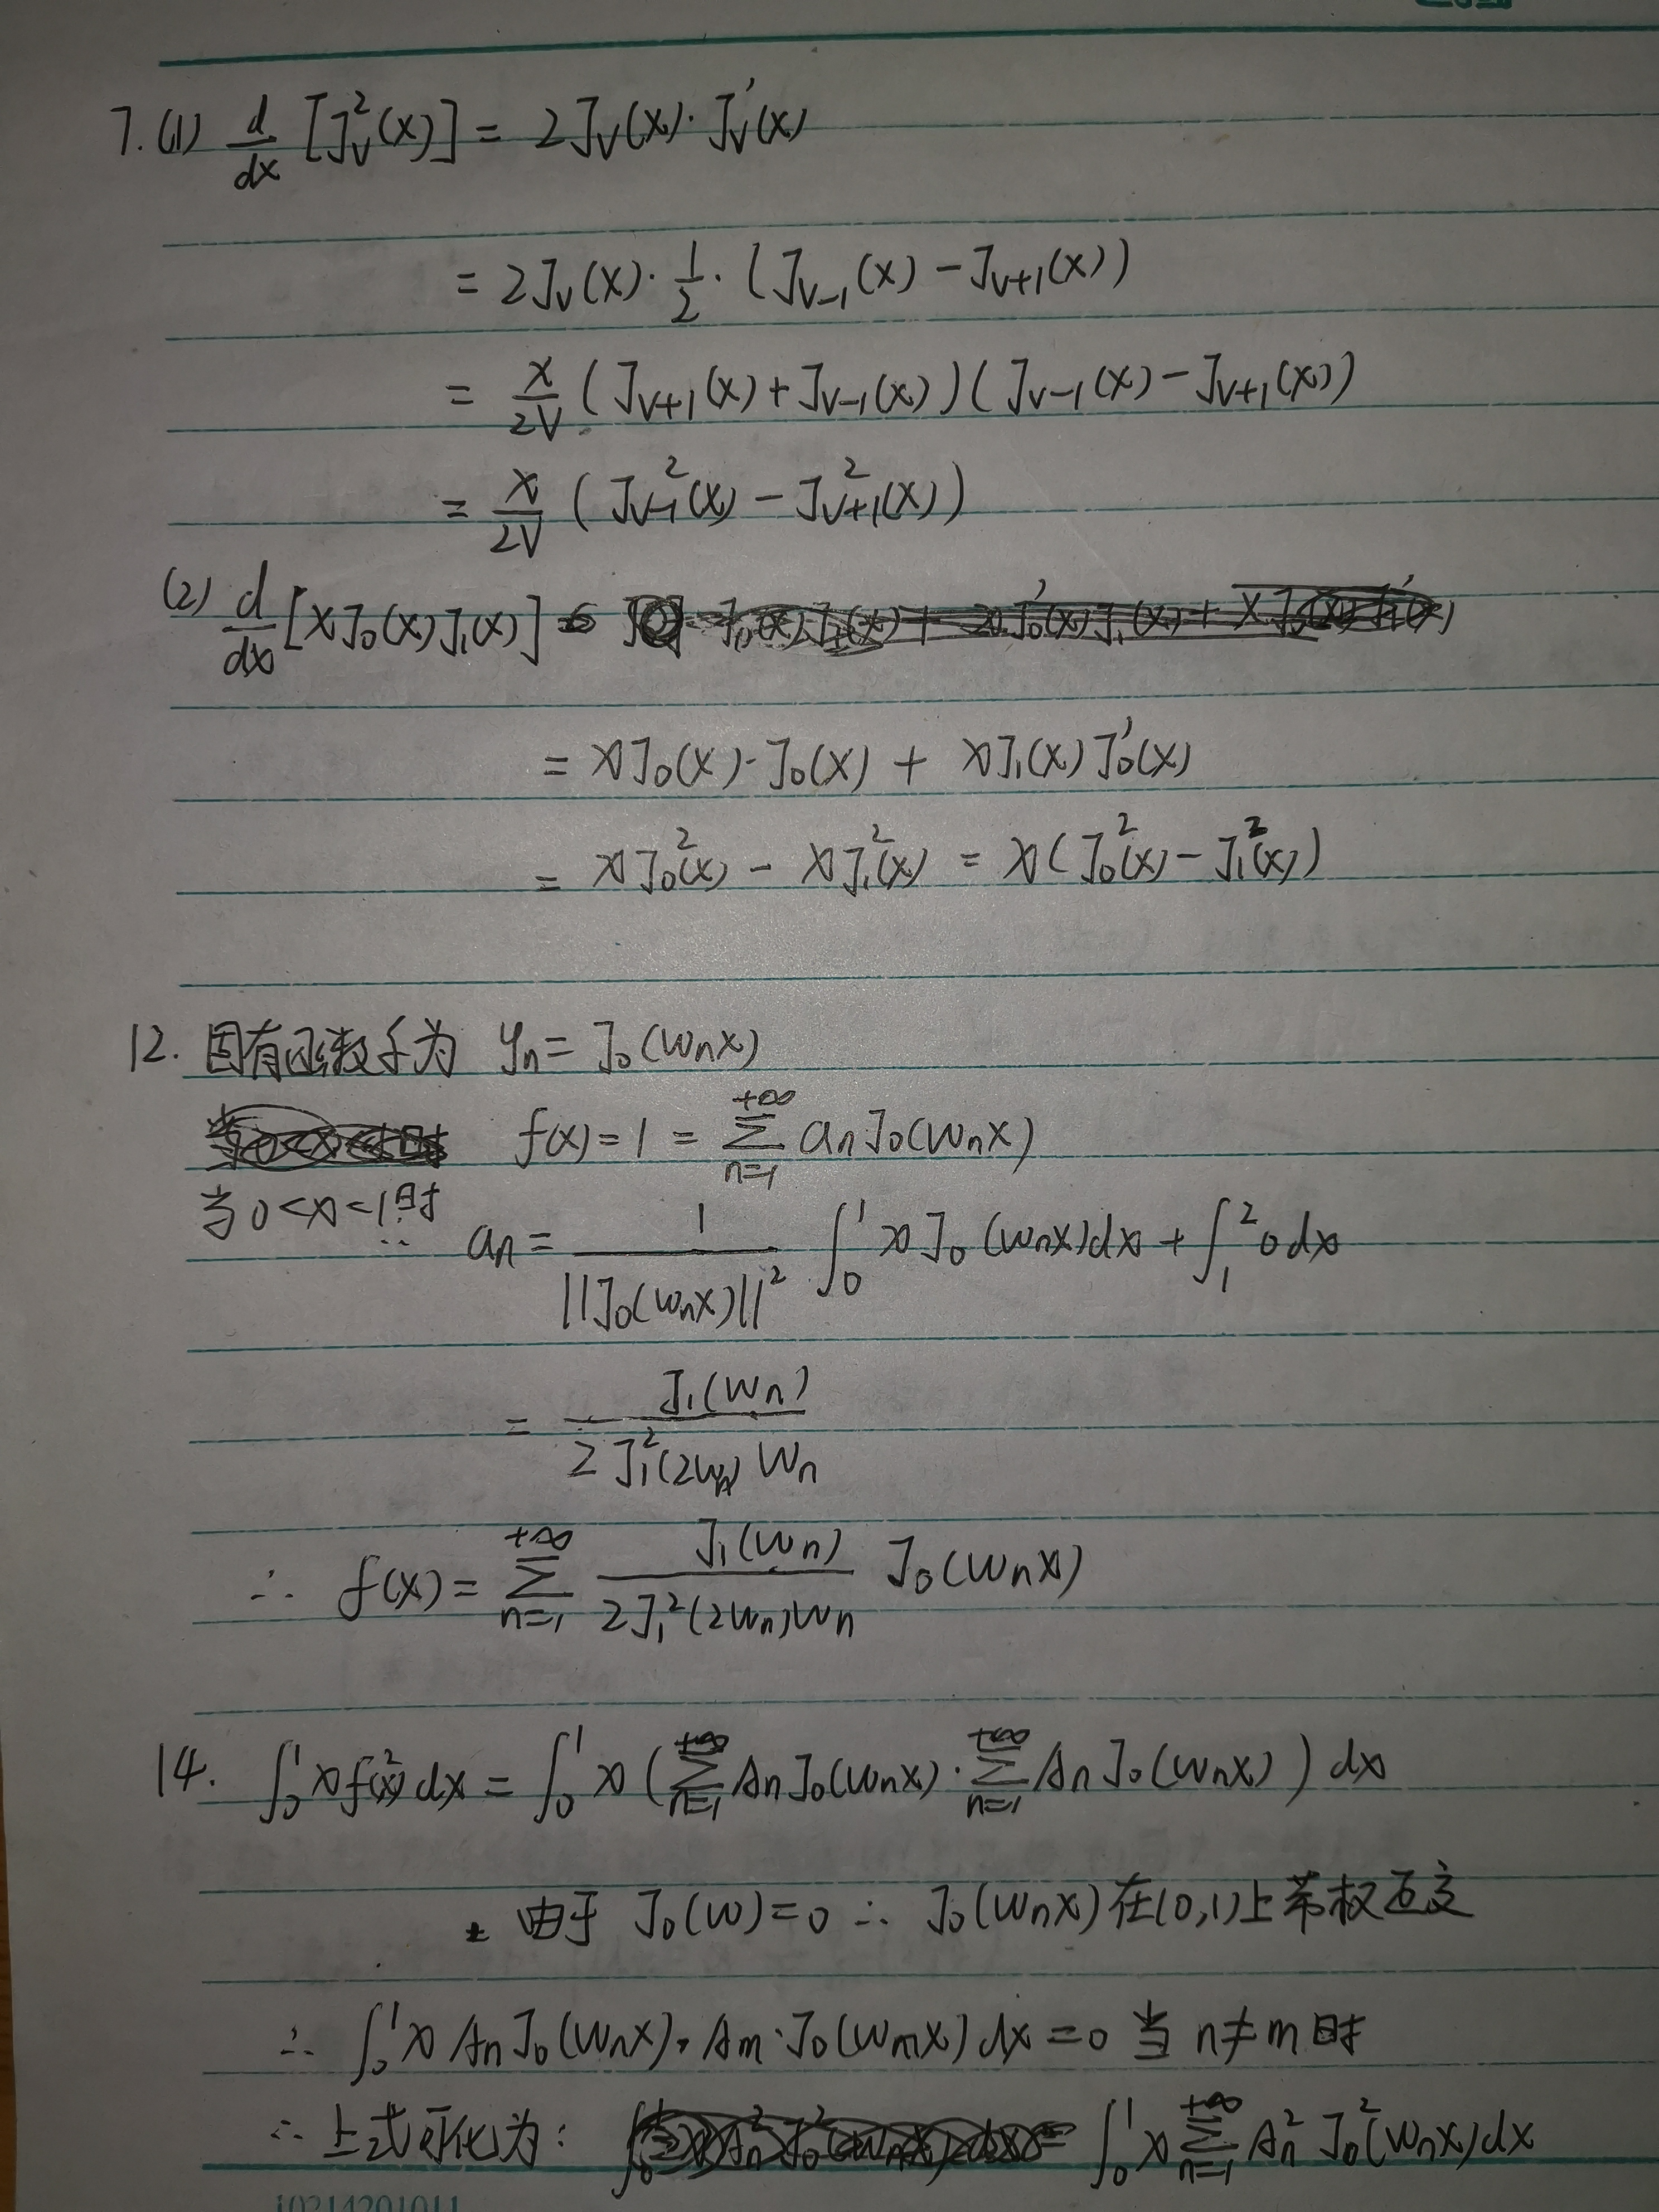 7. (1) d/dx [J_ν²(x)] = 2J_ν(x)·J_ν'(x)
= 2J_ν(x)·1/2·(J_{ν-1}(x) - J_{ν+1}(x))
= x/2ν (J_{ν+1}(x) + J_{ν-1}(x))(J_{ν-1}(x) - J_{ν+1}(x))
= x/2ν (J_{ν-1}²(x) - J_{ν+1}²(x))
(2) d/dx [xJ₀(x)J₁(x)]
= xJ₀(x)·J₀(x) + xJ₁(x)J₀'(x)
= xJ₀²(x) - xJ₁²(x) = x(J₀²(x) - J₁²(x))
12. 固有函数系为 y_n = J₀(ω_n x)
f(x) = 1 = Σ_{n=1}^{+∞} a_n J₀(ω_n x)
当0<x<1时
∴ a_n = 1/||J₀(ω_n x)||² ∫₀¹ xJ₀(ω_n x)dx + ∫₁² 0dx
= J₁(ω_n) / 2J₁²(2ω_n)ω_n
∴ f(x) = Σ_{n=1}^{+∞} J₁(ω_n) / 2J₁²(2ω_n)ω_n J₀(ω_n x)
14. ∫₀¹ xf²(x)dx = ∫₀¹ x(Σ_{n=1}^{+∞} A_n J₀(ω_n x)·Σ_{n=1}^{+∞} A_n J₀(ω_n x))dx
由于 J₀(ω)=0 ∴ J₀(ω_n x)在(0,1)上带权正交
∴ ∫₀¹ x A_n J₀(ω_n x)·A_m·J₀(ω_m x)dx = 0 当 n≠m时
∴ 上式可化为: ∫₀¹ x Σ_{n=1}^{+∞} A_n² J₀²(ω_n x)dx